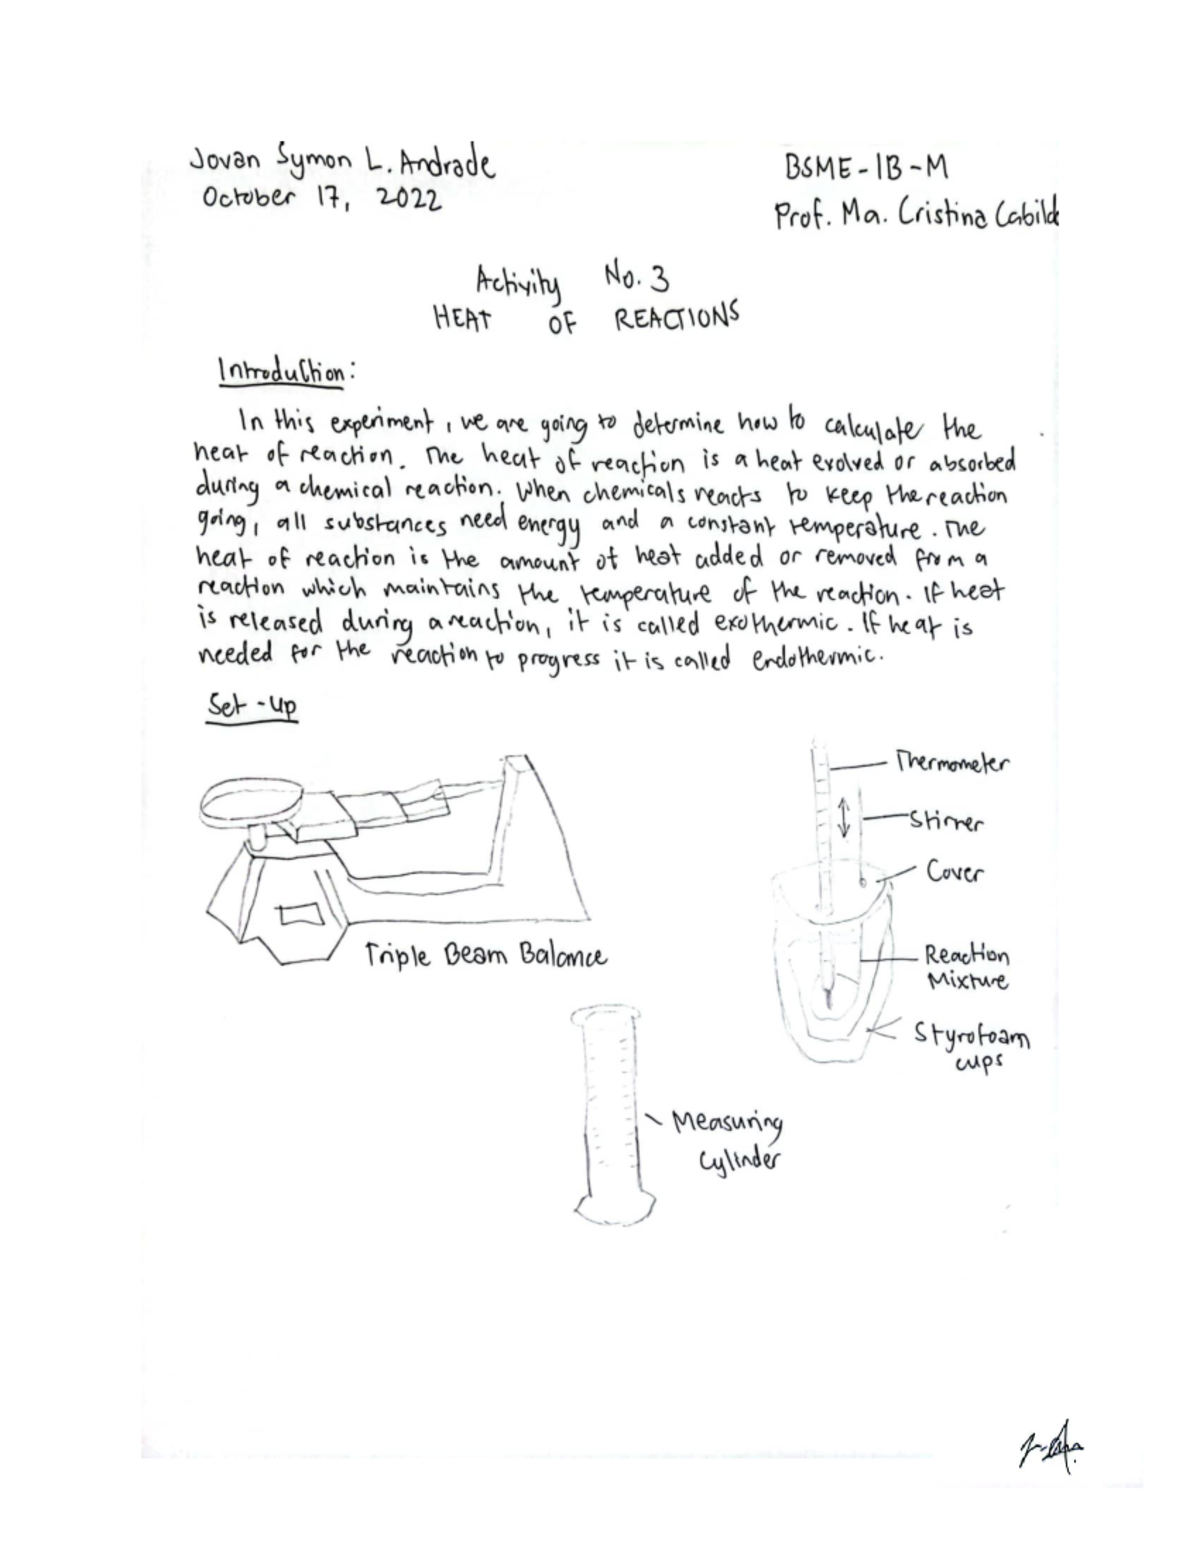 Jovan Symon L. Andrade
October 17, 2022
BSME-1B-M
Prof. Ma. Cristina Cabild
Activity No. 3
HEAT OF REACTIONS
Introduction:
In this experiment, we are going to determine how to calculate the
heat of reaction. The heat of reaction is a heat evolved or absorbed
during a chemical reaction. When chemicals reacts to keep the reaction
going, all substances need energy and a constant temperature. The
heat of reaction is the amount of heat added or removed from a
reaction which maintains the temperature of the reaction. If heat
is released during a reaction, it is called exothermic. If heat is
needed for the reaction to progress it is called endothermic.
Set-up
Thermometer
Stirrer
Cover
Triple Beam Balance
Reaction
Mixture
Styrofoam
cups
Measuring
Cylinder